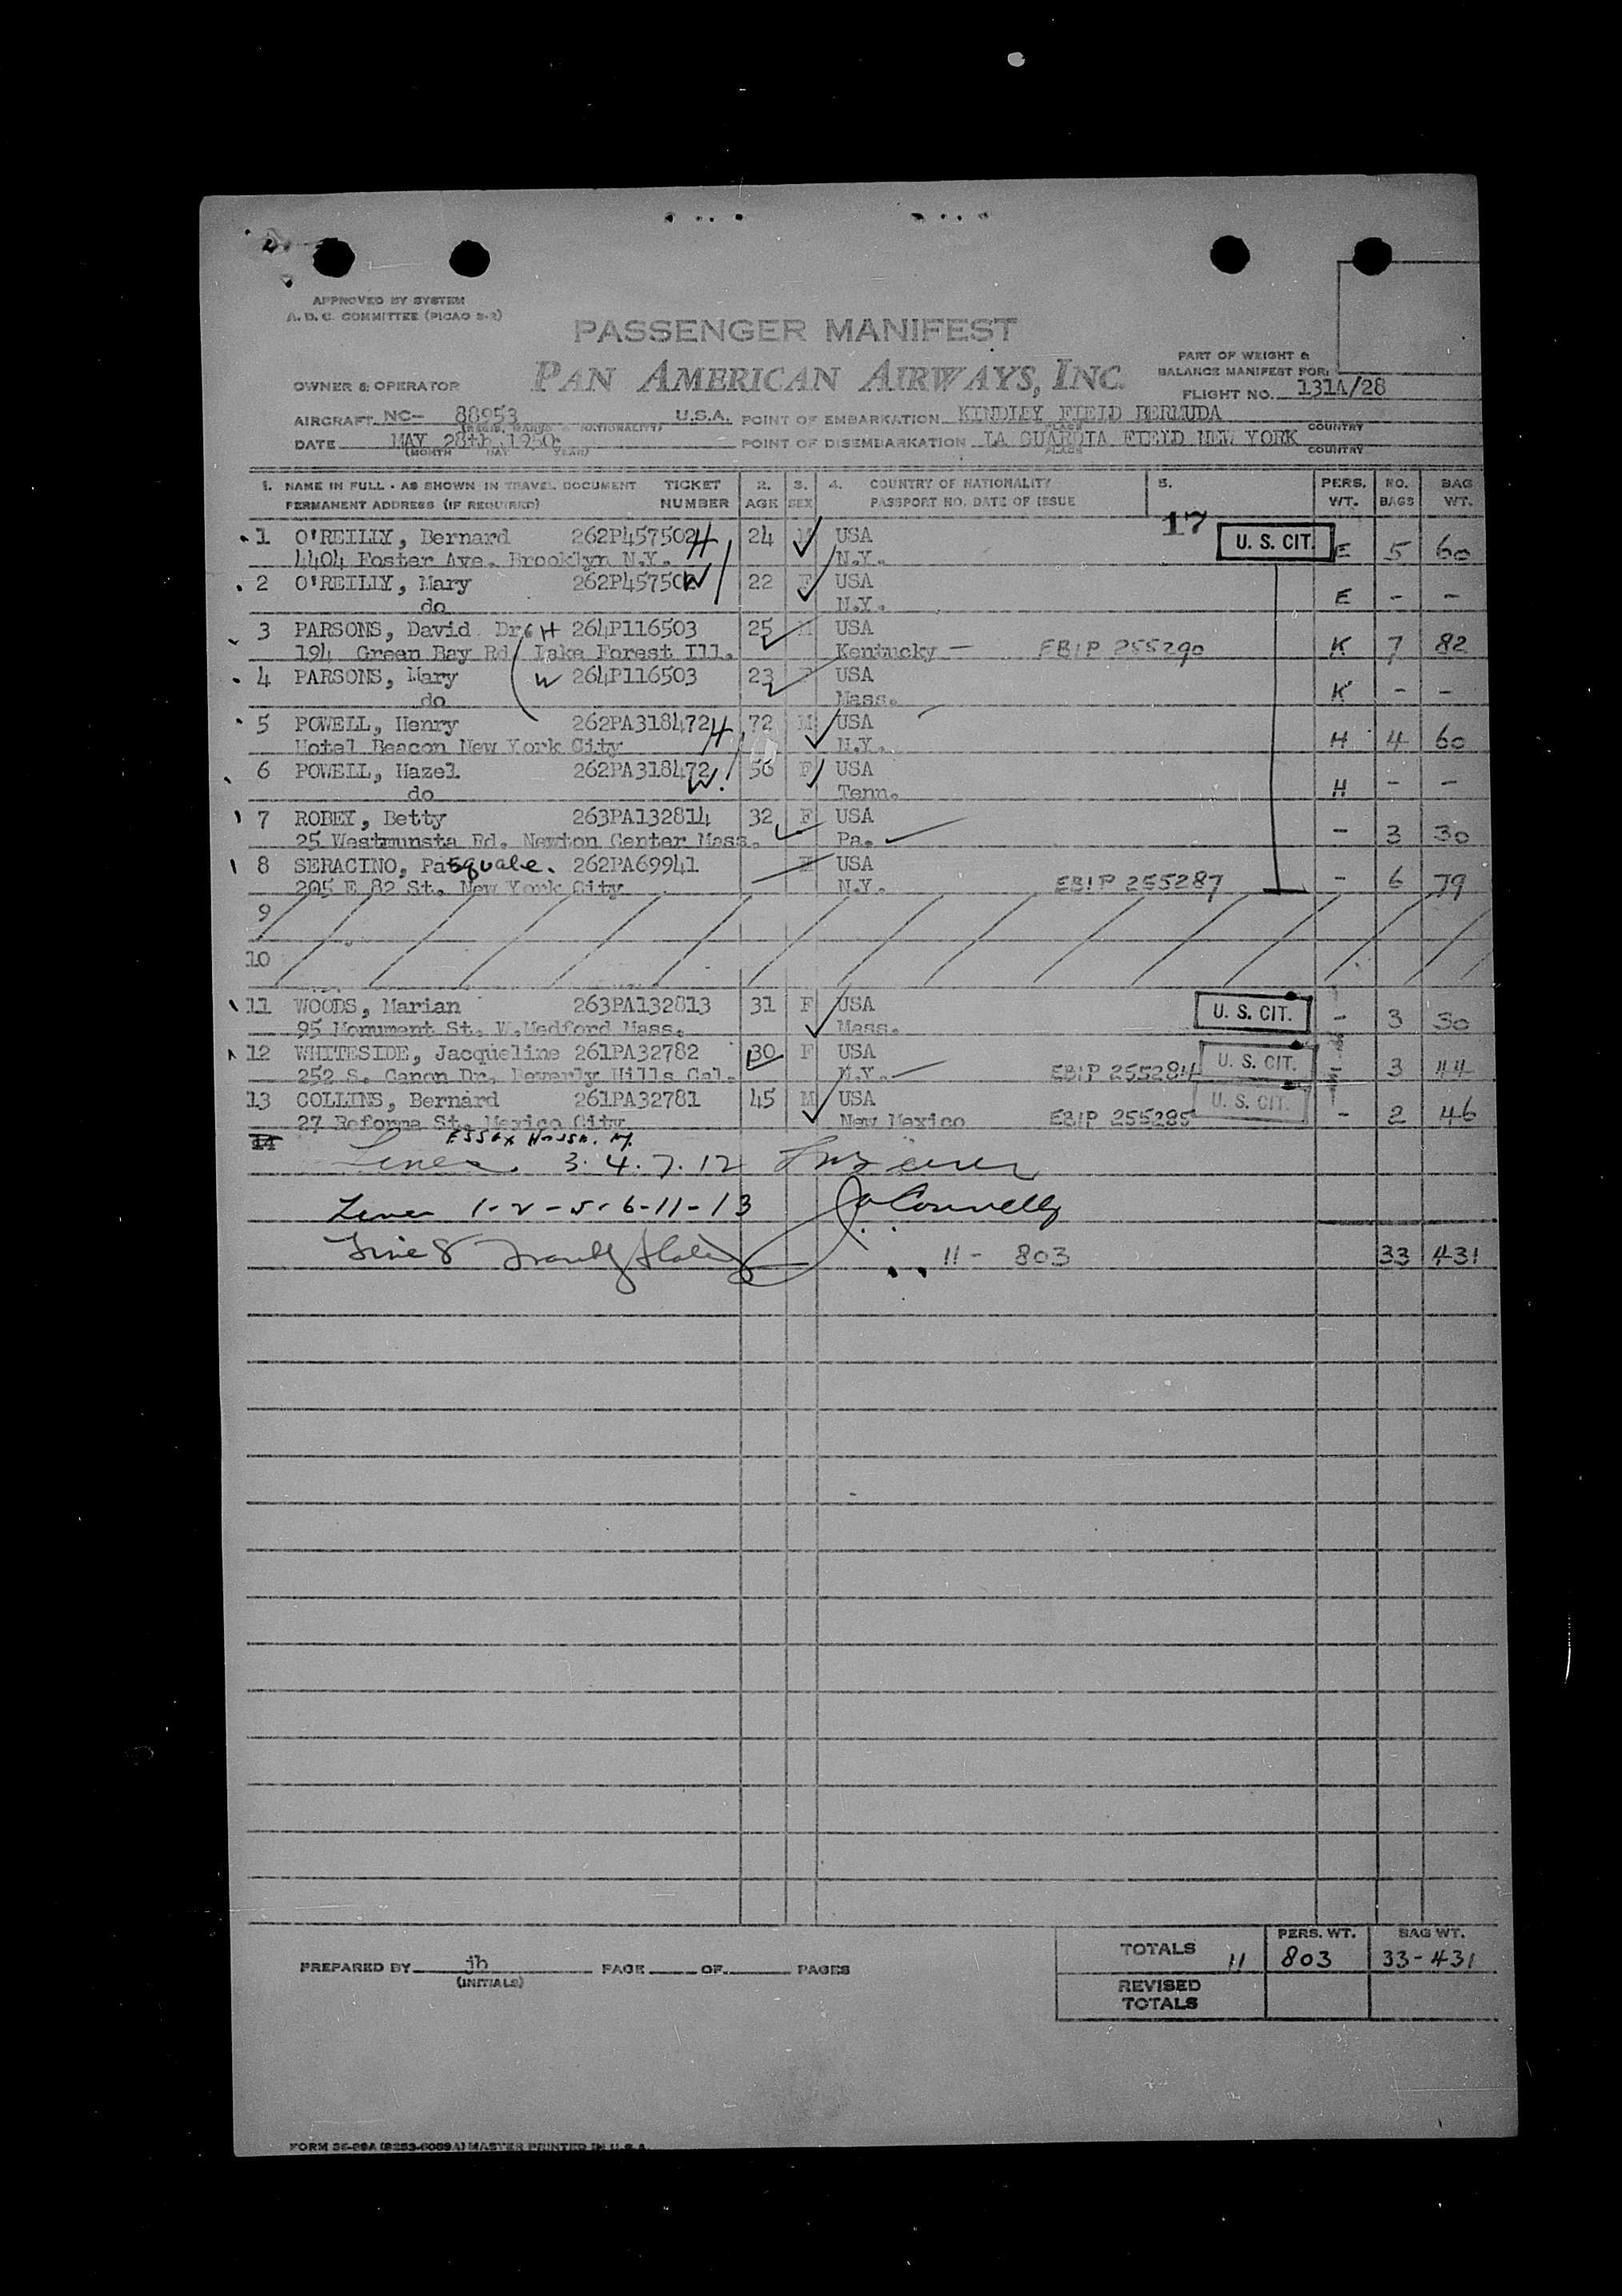 APPROVED BY SYSTEM
A. D. C. COMMITTEE (PICAO S-2)
PASSENGER MANIFEST
PAN AMERICAN AIRWAYS, INC.
PART OF WEIGHT &
BALANCE MANIFEST FOR:
OWNER & OPERATOR
FLIGHT NO. 131A/28
AIRCRAFT NC- 88953 U.S.A. POINT OF EMBARKATION KINDLEY FIELD BERMUDA
(REGIS. MARKS & NATIONALITY) PLACE COUNTRY
DATE MAY 28th, 1950. POINT OF DISEMBARKATION LA GUARDIA FIELD NEW YORK
(MONTH DAY YEAR) PLACE COUNTRY
1. NAME IN FULL - AS SHOWN IN TRAVEL DOCUMENT TICKET 2. 3. 4. COUNTRY OF NATIONALITY 5. PERS. NO. BAG
PERMANENT ADDRESS (IF REQUIRED) NUMBER AGE SEX PASSPORT NO. DATE OF ISSUE WT. BAGS WT.
17
1 O'REILLY, Bernard 262P457502 H 24 M USA U. S. CIT. E 5 60
4404 Foster Ave. Brooklyn N.Y. N.Y.
2 O'REILLY, Mary 262P457502 W 22 F USA E - -
do N.Y.
3 PARSONS, David Dr. H 264P116503 25 M USA K 7 82
194 Green Bay Rd Lake Forest Ill. Kentucky - EBIP 255290
4 PARSONS, Mary W 264P116503 23 F USA K - -
do Mass.
5 POWELL, Henry 262PA318472 H 72 M USA H 4 60
Hotel Beacon New York City N.Y.
6 POWELL, Hazel 262PA318472 W. 56 F USA H - -
do Tenn.
7 ROBEY, Betty 263PA132814 32 F USA - 3 30
25 Westmunsta Rd. Newton Center Mass. Pa.
8 SERACINO, Pasquale. 262PA69941 USA - 6 79
205 E 82 St. New York City N.Y. EBIP 255287
9
10
11 WOODS, Marian 263PA132813 31 F USA U. S. CIT. - 3 30
95 Monument St. W.Medford Mass. Mass.
12 WHITESIDE, Jacqueline 261PA32782 30 F USA U. S. CIT. 3 44
252 S. Canon Dr. Beverly Hills Cal. N.Y. EBIP 255284
13 COLLINS, Bernard 261PA32781 45 M USA U. S. CIT. - 2 46
27 Reforma St. Mexico City New Mexico EBIP 255285
14 Essex House. NY.
Lines 3. 4. 7. 12
Lines 1-2-5-6-11-13 J O Connelly
Line 8 11 - 803 33 431
PERS. WT. BAG WT.
TOTALS 11 803 33-431
PREPARED BY jh PAGE OF PAGES
(INITIALS)
REVISED
TOTALS
FORM 36-99A (8253-6009A) MASTER PRINTED IN U.S.A.